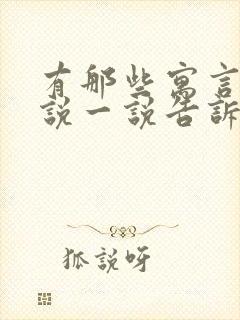 有那些寓言
說一說告訴
狐說呀